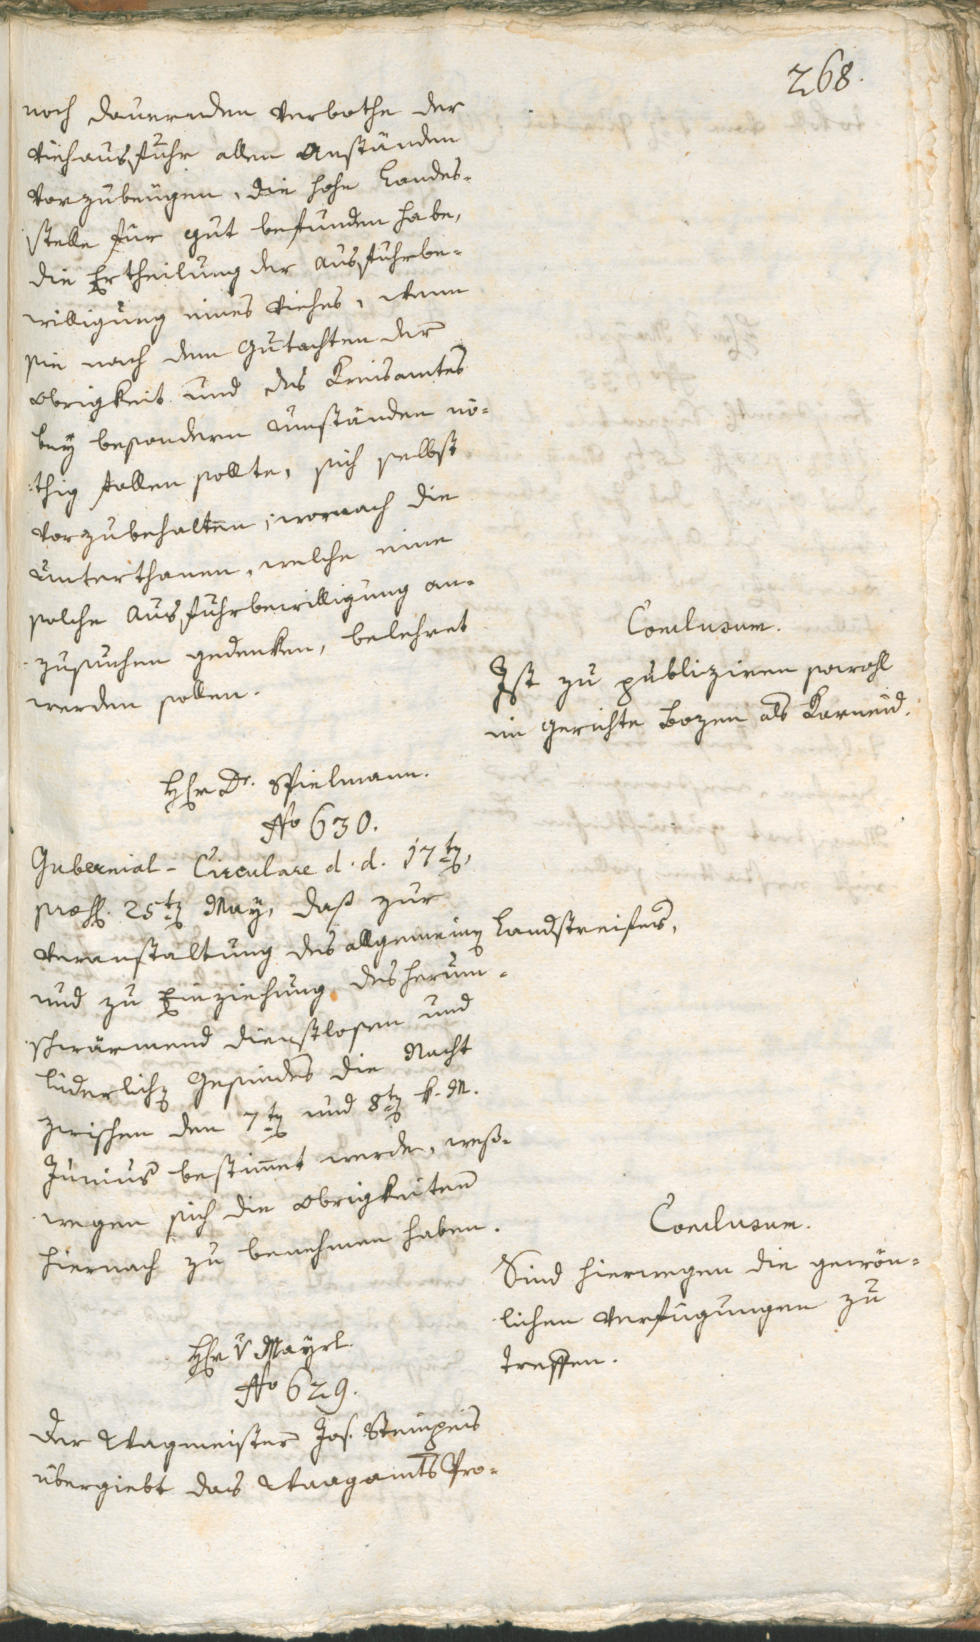 268.
noch dauernden Verbothe der
Viehausfuhr allen Anständen
vorzubeugen, die hohe Landes-
stelle für gut befunden habe,
die Ertheilung der Ausfuhrbe-
willigung eines Viehes, wenn
sie nach dem Gutachten der
Obrigkeit und des Kreisamtes
bey besondern Umständen nö-
thig fallen sollte, sich selbst
vorzubehalten; wornach die
Unterthanen, welche eine
solche Ausfuhrbewilligung an-
zusuchen gedenken, belehret
werden sollen.
Conclusum.
Ist zu publiziren sowohl
im Gerichte Bozen als Karneid.
Hr Dr. Spielmann.
No 630.
Gubernial-Circulare d. d. 17ten,
præs. 25ten May, daß zur
Veranstaltung des allgemeinen Landstreifens,
und zu Einziehung des herum-
schwärmend dienstlosen und
liederlichen Gesindes die Nacht
zwischen den 7ten und 8ten k. M.
Junius bestimmt werde, weß-
wegen sich die Obrigkeiten
hiernach zu benehmen haben.
Conclusum.
Sind hierwegen die gewön-
lichen Verfügungen zu
treffen.
Hr v Mayrl.
No 629.
Der Wagmeister Jos. Stempeis
übergiebt das Waagamts Pro-